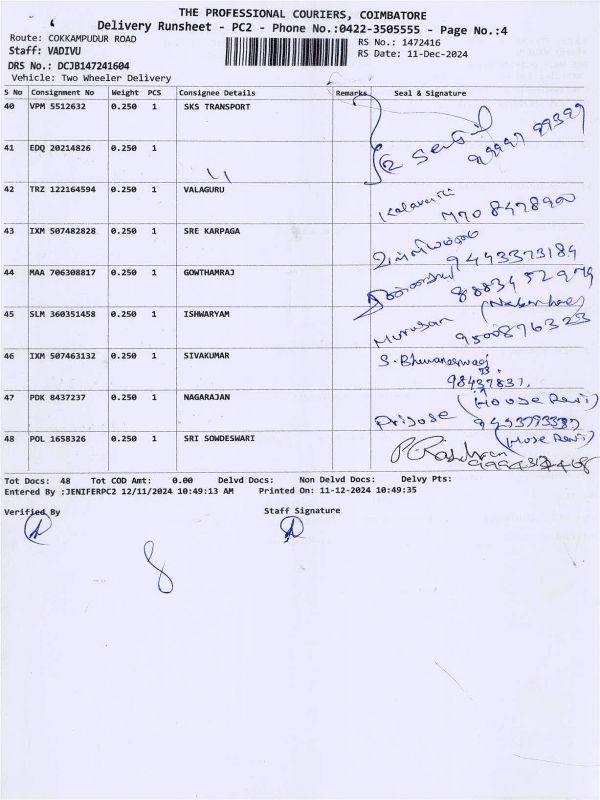 THE PROFESSIONAL COURIERS, COIMBATORE
Delivery Runsheet - PC2 - Phone No.:0422-3505555 - Page No.:4
Route: COKKAMPUDUR ROAD
RS No.: 1472416
Staff: VADIVU
RS Date: 11-Dec-2024
DRS No.: DCJB147241604
Vehicle: Two Wheeler Delivery
S No Consignment No Weight PCS Consignee Details Remarks Seal & Signature
40 VPM 5512632 0.250 1 SKS TRANSPORT
41 EDQ 20214826 0.250 1
42 TRZ 122164594 0.250 1 VALAGURU
43 IXM 507482828 0.250 1 SRE KARPAGA
9443373184
44 MAA 706308817 0.250 1 GOWTHAMRAJ
45 SLM 360351458 0.250 1 ISHWARYAM
Murugan 9500876323
46 IXM 507463132 0.250 1 SIVAKUMAR S. Bhuvaneswari
47 PDK 8437237 0.250 1 NAGARAJAN
48 POL 1658326 0.250 1 SRI SOWDESWARI
Tot Docs: 48 Tot COD Amt: 0.00 Delvd Docs: Non Delvd Docs: Delvy Pts:
Entered By :JENIFERPC2 12/11/2024 10:49:13 AM Printed On: 11-12-2024 10:49:35
Verified By Staff Signature